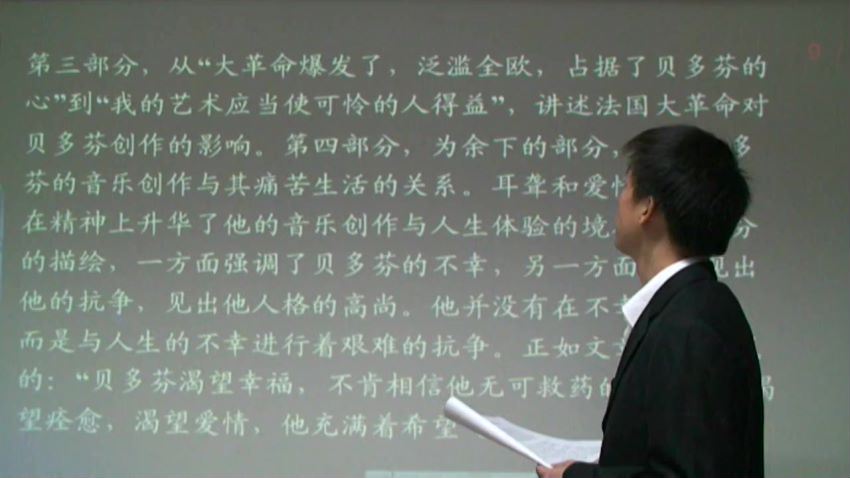 第三部分，从“大革命爆发了，泛滥全欧，占据了贝多芬的
心”到“我的艺术应当使可怜的人得益”，讲述法国大革命对
贝多芬创作的影响。第四部分，为余下的部分，多
芬的音乐创作与其痛苦生活的关系。耳聋和爱
在精神上升华了他的音乐创作与人生体验的境
的描绘，一方面强调了贝多芬的不幸，另一方面见出
他的抗争，见出他人格的高尚。他并没有在不
而是与人生的不幸进行着艰难的抗争。正如文
的：“贝多芬渴望幸福，不肯相信他无可救药的
望痊愈，渴望爱情，他充满着希望